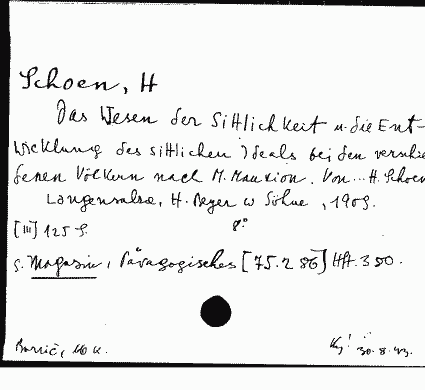 Schoen, H
Das Wesen der Sittlichkeit u. die Ent-
wicklung des sittlichen Ideals bei den verschie
denen Völkern nach M. Mauxion. Von... H. Schoen
Langensalza, H. Beyer u Söhne, 1909.
[III] 125 S. 8°
s. Magazin, Pädagogisches [75.286] Hft. 350.
30.8.43.